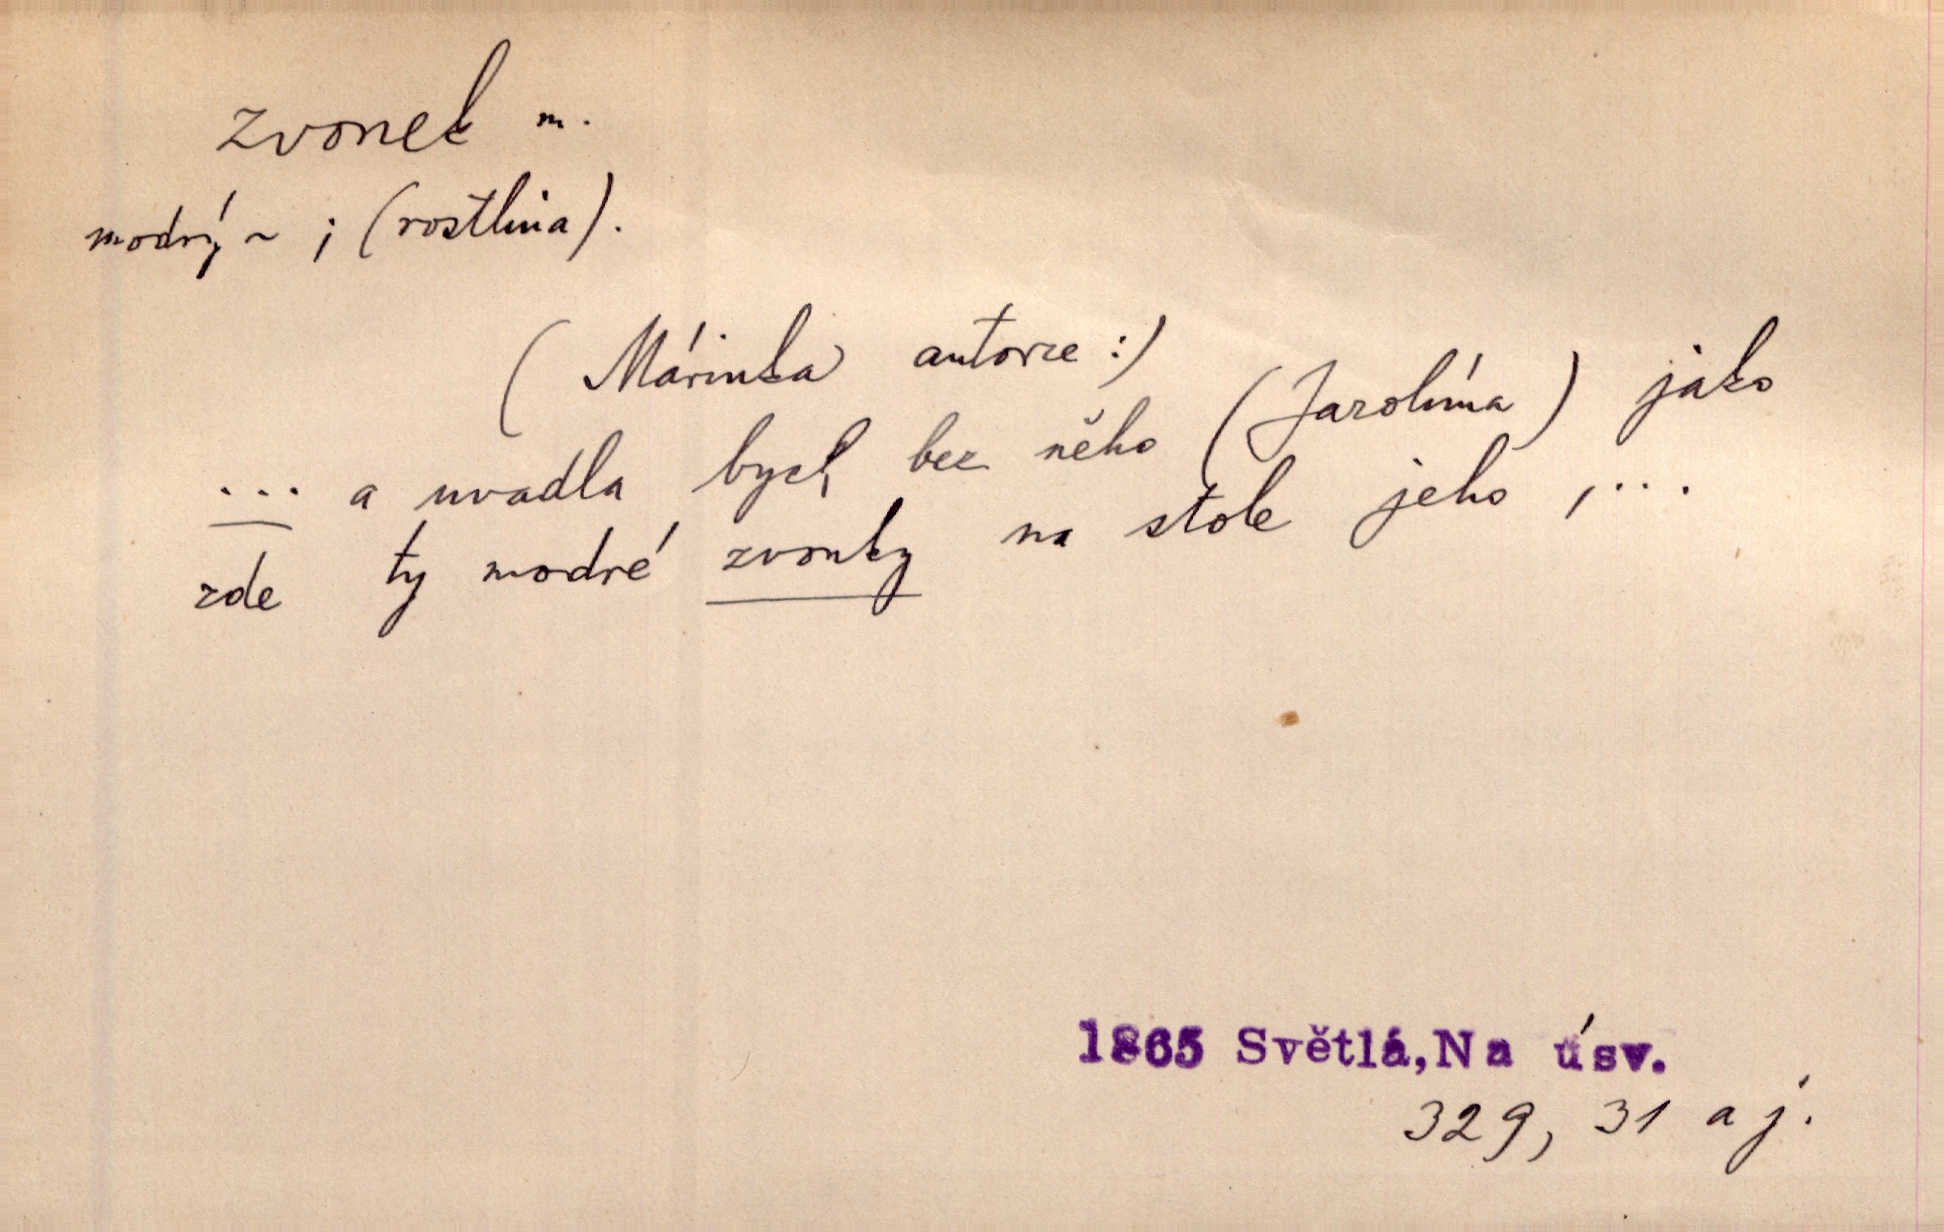 zvonek m.
modrý ~ ; (rostlina).
(Márinka autorce :)
... a uvadla bych bez něho (Jarolíma) jako
zde ty modré zvonky na stole jeho, ...
1865 Světlá, Na úsv.
329, 31 a j.